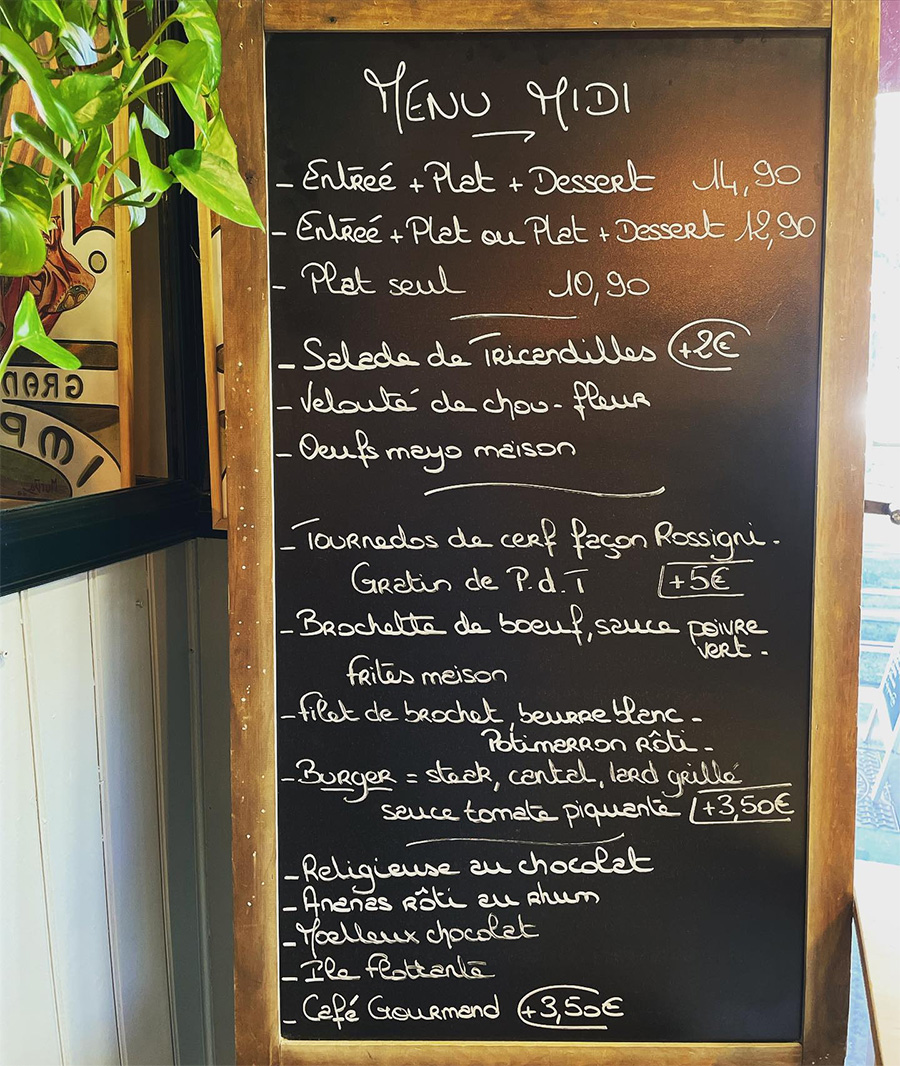 MENU MIDI
- Entreé + Plat + Dessert 14,90
- Entreé + Plat ou Plat + Dessert 12,90
- Plat seul 10,90
- Salade de Tricandilles +2€
- Velouté de chou-fleur
- Oeufs mayo maison
- Tournedos de cerf façon Rossigni.
Gratin de P.d.T +5€
- Brochette de boeuf, sauce poivre
vert.
frites maison
- filet de brochet, beurre blanc.
Potimarron rôti.
- Burger = steak, cantal, lard grillé
sauce tomate piquante +3,50€
- Religieuse au chocolat
- Ananas rôti au rhum
- Moelleux chocolat
- Ile flottante
- Café Gourmand +3,50€
GRAD
IMP